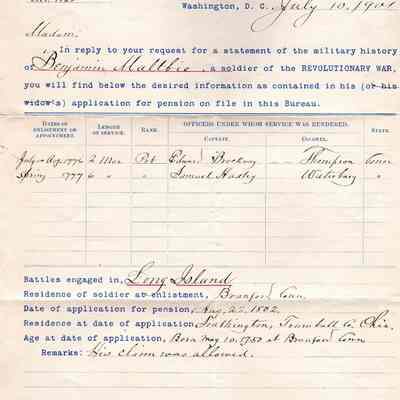 Washington, D. C., July 10, 1901
Madam:
In reply to your request for a statement of the military history
of Benjamin Maltbie, a soldier of the REVOLUTIONARY WAR,
you will find below the desired information as contained in his (or his
widow's) application for pension on file in this Bureau.
DATES OF ENLISTMENT OR APPOINTMENT. LENGTH OF SERVICE. RANK. OFFICERS UNDER WHOM SERVICE WAS RENDERED. STATE.
CAPTAIN. COLONEL.
July or Aug. 1776 2 Mos Pvt Edward Brockway Thompson Conn
Spring 1777 6 " " Samuel Huxley Waterbury "
Battles engaged in, Long Island
Residence of soldier at enlistment, Branford Conn.
Date of application for pension, Aug. 27, 1832.
Residence at date of application, Trumbull Co. Ohio.
Age at date of application, Born May 10, 1750 at Branford Conn
Remarks: His claim was allowed.